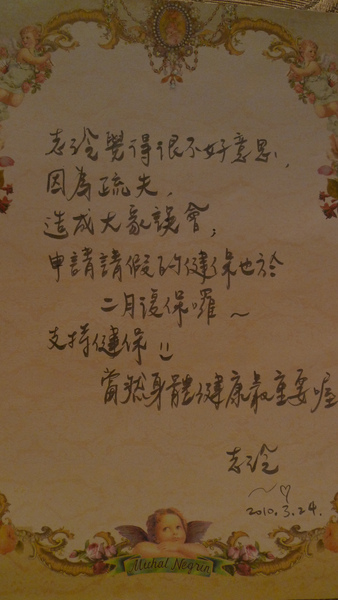 志玲覺得很不好意思，
因為疏失，
造成大家誤會；
申請請假的健保也於
二月復保囉～
支持健保!!
當然身體健康最重要喔
志玲
～♡
2010.3.24.
Uchal Negrin